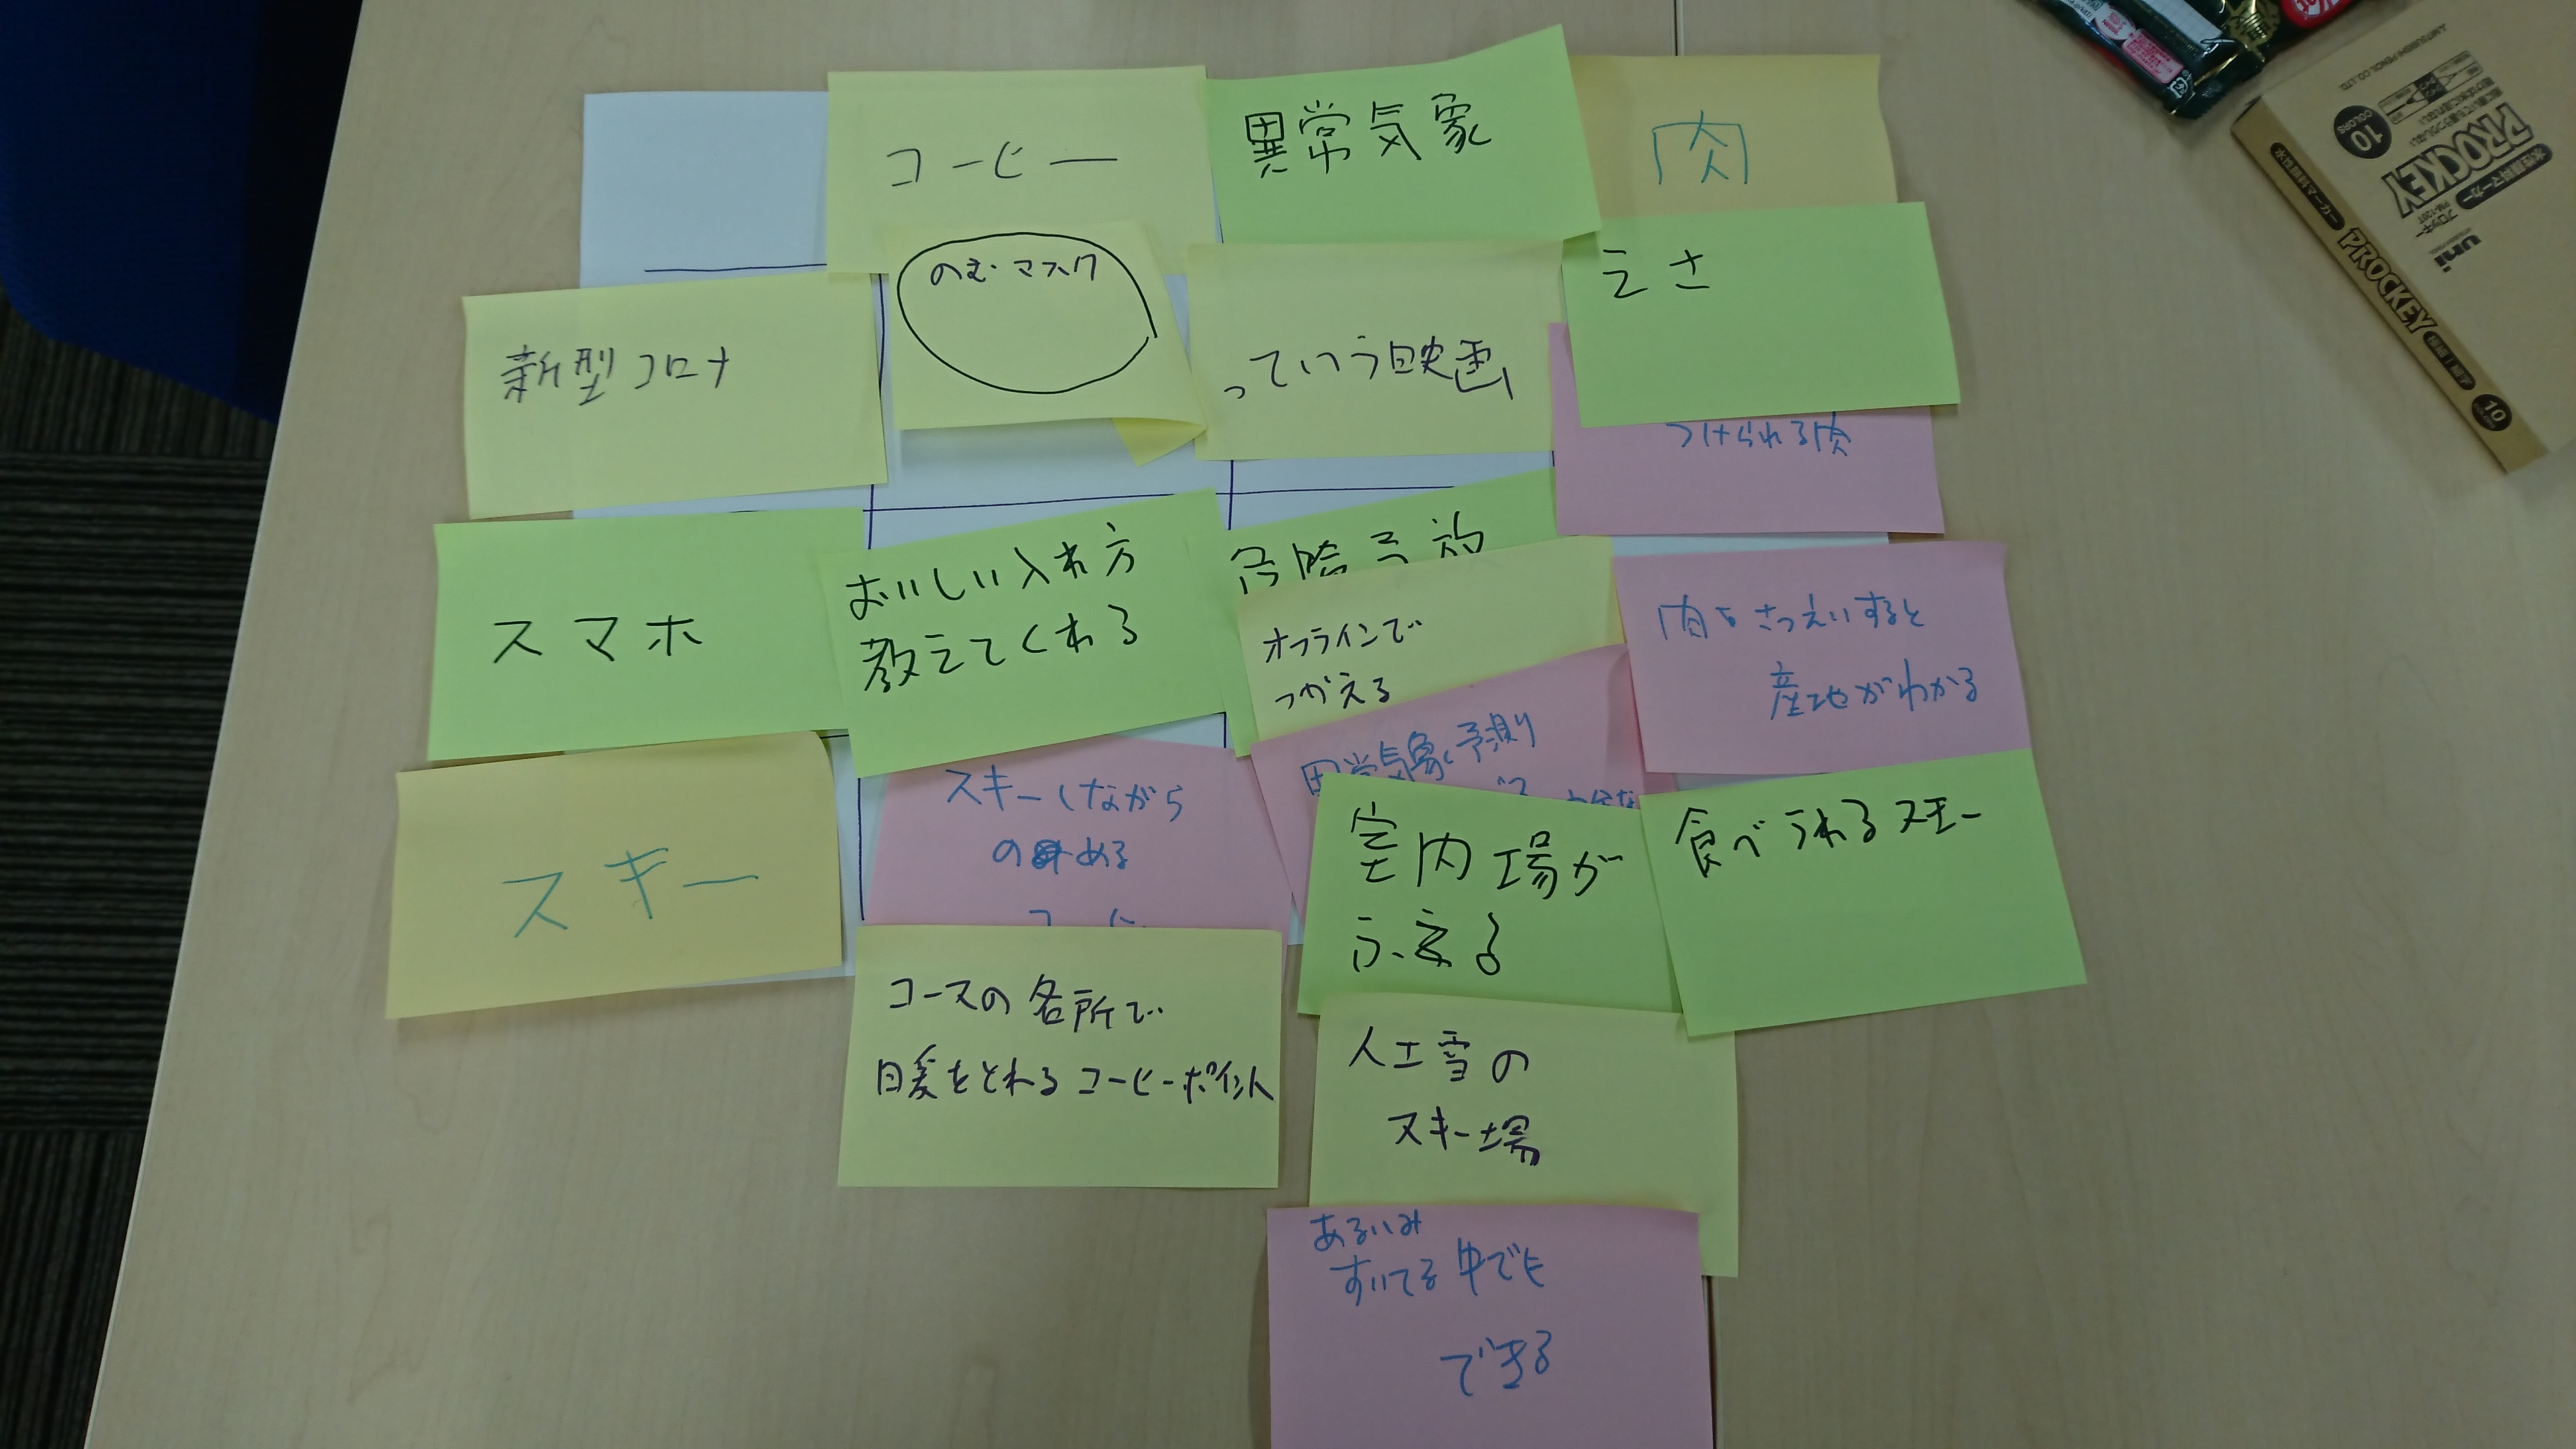 コーヒー
異常気象
肉
新型コロナ
のむマスク
っていう映画
えさ
つけられる肉
スマホ
おいしい入れ方
教えてくれる
オフラインで
つかえる
異常気象予測
肉をさつえいすると
産地がわかる
スキー
スキーしながら
のめる
コースの各所で
日暖をとれるコーヒーポイント
室内場が
ふえる
食べられるスキー
人工雪の
スキー場
あるいみ
すいてる中でも
できる
uni
水性顔料マーカー
プロッキー
PM-120T
PROCKEY
10
COLORS
MITSUBISHI PENCIL CO., LTD
水性顔料マーカー
PROCKEY
10